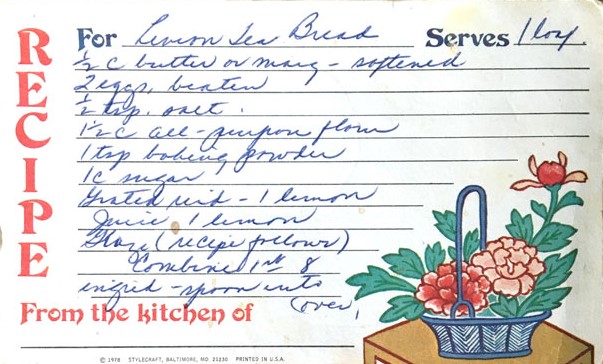 RECIPE
For Lemon Tea Bread Serves 1 loaf.
1/2 c butter or marg - softened
2 eggs, beaten
1/2 tsp. salt.
1 1/2 c all-purpose flour
1 tsp baking powder
1 c sugar
Grated rind - 1 lemon
Juice 1 lemon
Glaze (recipe follows)
Combine 1st 8
ingred - spoon into
(over)
From the kitchen of
© 1978 STYLECRAFT, BALTIMORE, MD. 21230 PRINTED IN U.S.A.